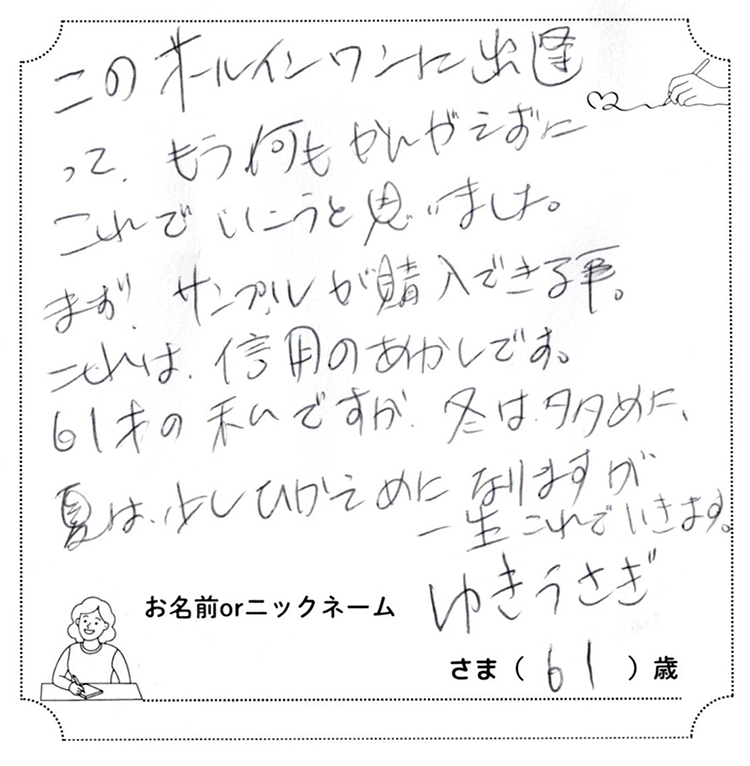 このオールインワンに出逢
って、もう何もかんがえずに
これでいこうと思いました。
まず、サンプルが購入できる事。
これは、信用のあかしです。
61才の私ですが、冬は、多めに、
夏は、少しひかえめになりますが
一生これでいきます。
ゆきうさぎ
お名前orニックネーム
さま（61）歳